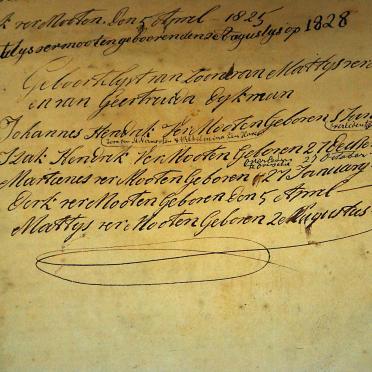 k ver Mooten. Don 5 April - 1825
Matys vermooten geboorenden 2e Augustus op 1828
Geboorhlyst van Zoone van Mattys ver
en van Geertruida Dykman
Johannes Hendrik Ver Mooten Geboren 1 Jan
Izak Hendrik Ver Mooten Geboren 27
21 October
Martienes ver Mooten Geboren 27 January
Derk ver Mooten Geboren Don 5 April
Mattys ver Mooten Geboren 2e Augustus